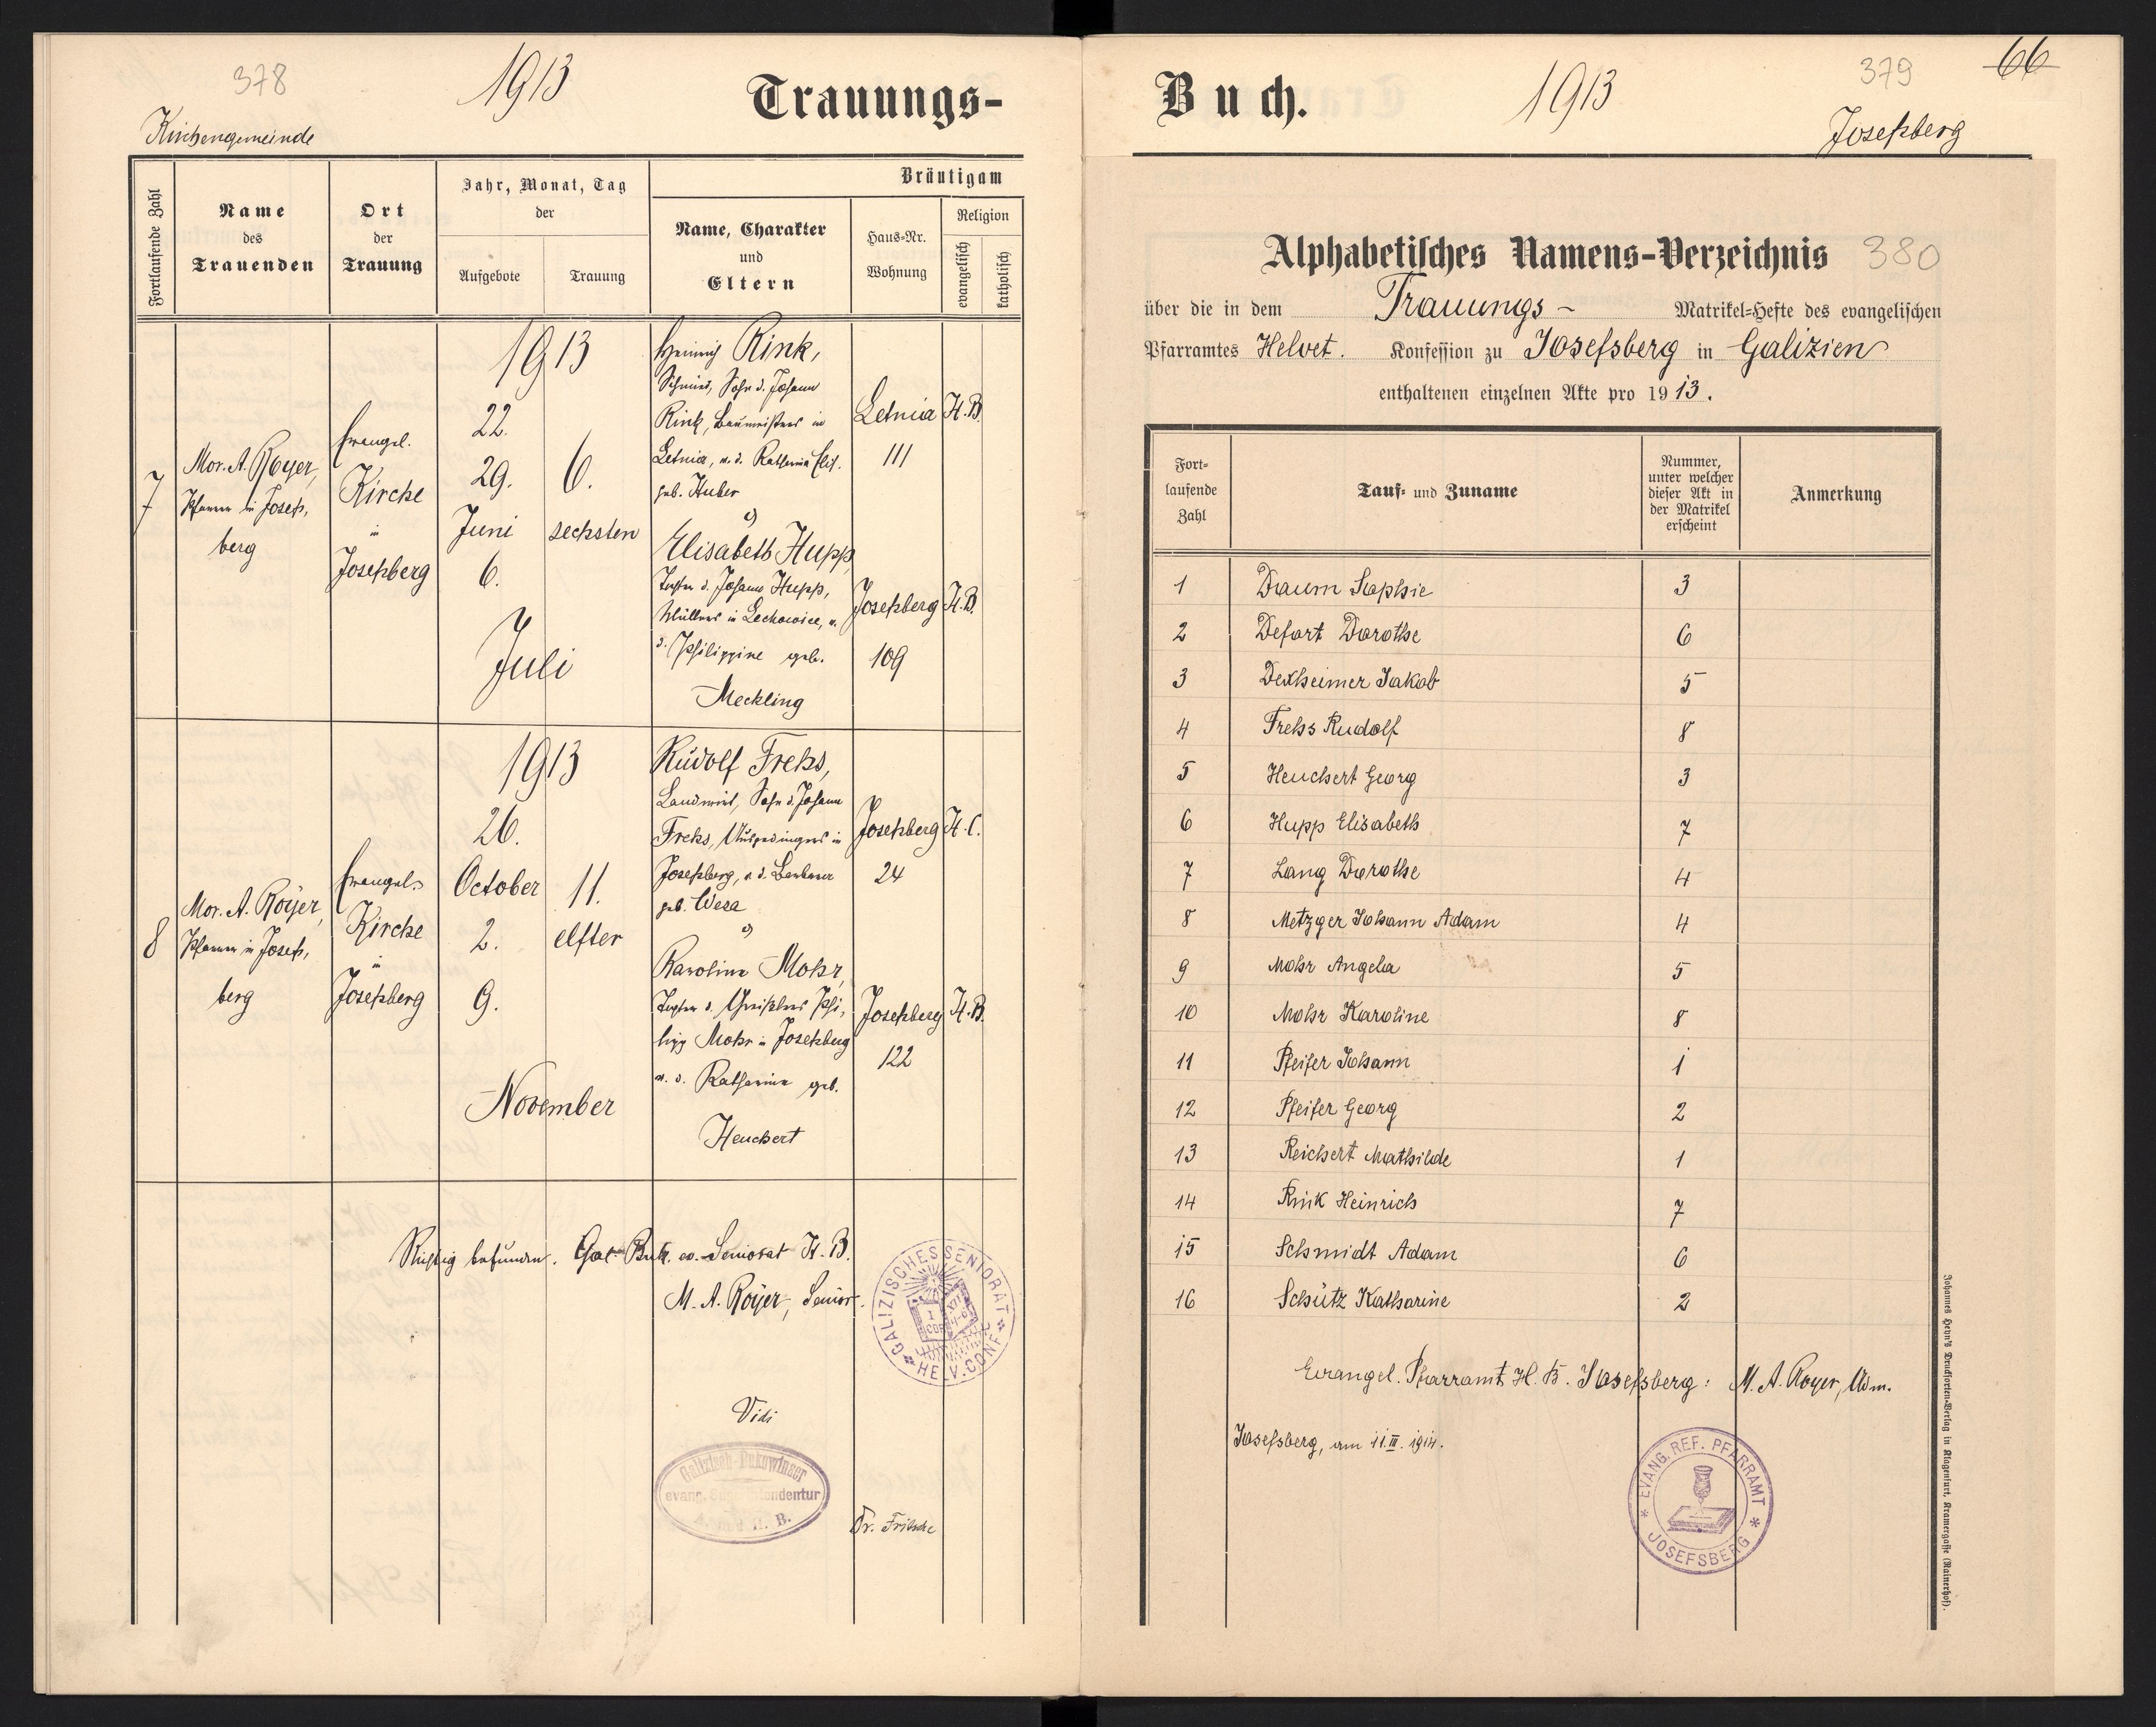 378
1913
Trauungs-
Kirchengemeinde
Fortlaufende Zahl
Name
des
Trauenden
Ort
der
Trauung
Jahr, Monat, Tag
der
Aufgebote
Trauung
Bräutigam
Name, Charakter
und
Eltern
Haus-Nr.
Wohnung
Religion
evangelisch
katholisch
7
Mor. A. Royer,
Pfarrer in Josefs,
berg
Evangel.
Kirche
in
Josefsberg
1913
22.
29.
Juni
6.
6.
sechsten
Juli
Heinrich Rink,
Schmied, Sohn d. Johann
Rink, Baumeisters in
Letnia, u. d. Katharina Elis.
geb. Huber
Letnia
111
H. B.
Elisabeth Hupp,
Tochter d. Johann Hupp,
Müllers in Lechowice, u.
d. Philippine geb.
Meckling
Josefsberg
109
H. B.
8
Mor. A. Royer,
Pfarrer in Josefs,
berg
Evangel.
Kirche
in
Josefsberg
1913
26.
October
2.
9.
11.
elfter
November
Rudolf Frehs,
Landwirt, Sohn d. Johann
Frehs, Ausgedingers in
Josefsberg, u. d. Barbara
geb. Wesa
Josefsberg
24
H. C.
Karoline Mohr,
Tochter d. Greißlers Phi,
lipp Mohr in Josefsberg
u. d. Katharina geb.
Heuchert
Josefsberg
122
H. B.
Richtig befunden. Gal. Buk. ev. Seniorat H. B.
M. A. Royer, Senior.
GALIZISCHES SENIORAT
HELV. CONF
Vidi
Galizisch-Bukowinaer
evang. Superintendentur
A. und H. B.
Dr. Fritsche
Buch.
1913
379
66
Josefsberg
Alphabetisches Namens-Verzeichnis
380
über die in dem Trauungs- Matrikel-Hefte des evangelischen
Pfarramtes Helvet. Konfession zu Josefsberg in Galizien
enthaltenen einzelnen Akte pro 1913.
Fort-
laufende
Zahl
Tauf- und Zuname
Nummer,
unter welcher
dieser Akt in
der Matrikel
erscheint
Anmerkung
1 Daum Sophie 3
2 Defort Dorothe 6
3 Dexheimer Jakob 5
4 Frehs Rudolf 8
5 Heuchert Georg 3
6 Hupp Elisabeth 7
7 Lang Dorothe 4
8 Metzger Johann Adam 4
9 Mohr Angela 5
10 Mohr Karoline 8
11 Pfeifer Johann 1
12 Pfeifer Georg 2
13 Reichert Mathilde 1
14 Rink Heinrich 7
15 Schmidt Adam 6
16 Schütz Katharine 2
Evangel. Pfarramt H. B. Josefsberg: M. A. Royer, Adm.
Josefsberg, am 11. III. 1914.
EVANG. REF. PFARRAMT
JOSEFSBERG
Johannes Heyn's Drucksorten-Verlag in Klagenfurt, Kramergasse (Rainerhof).